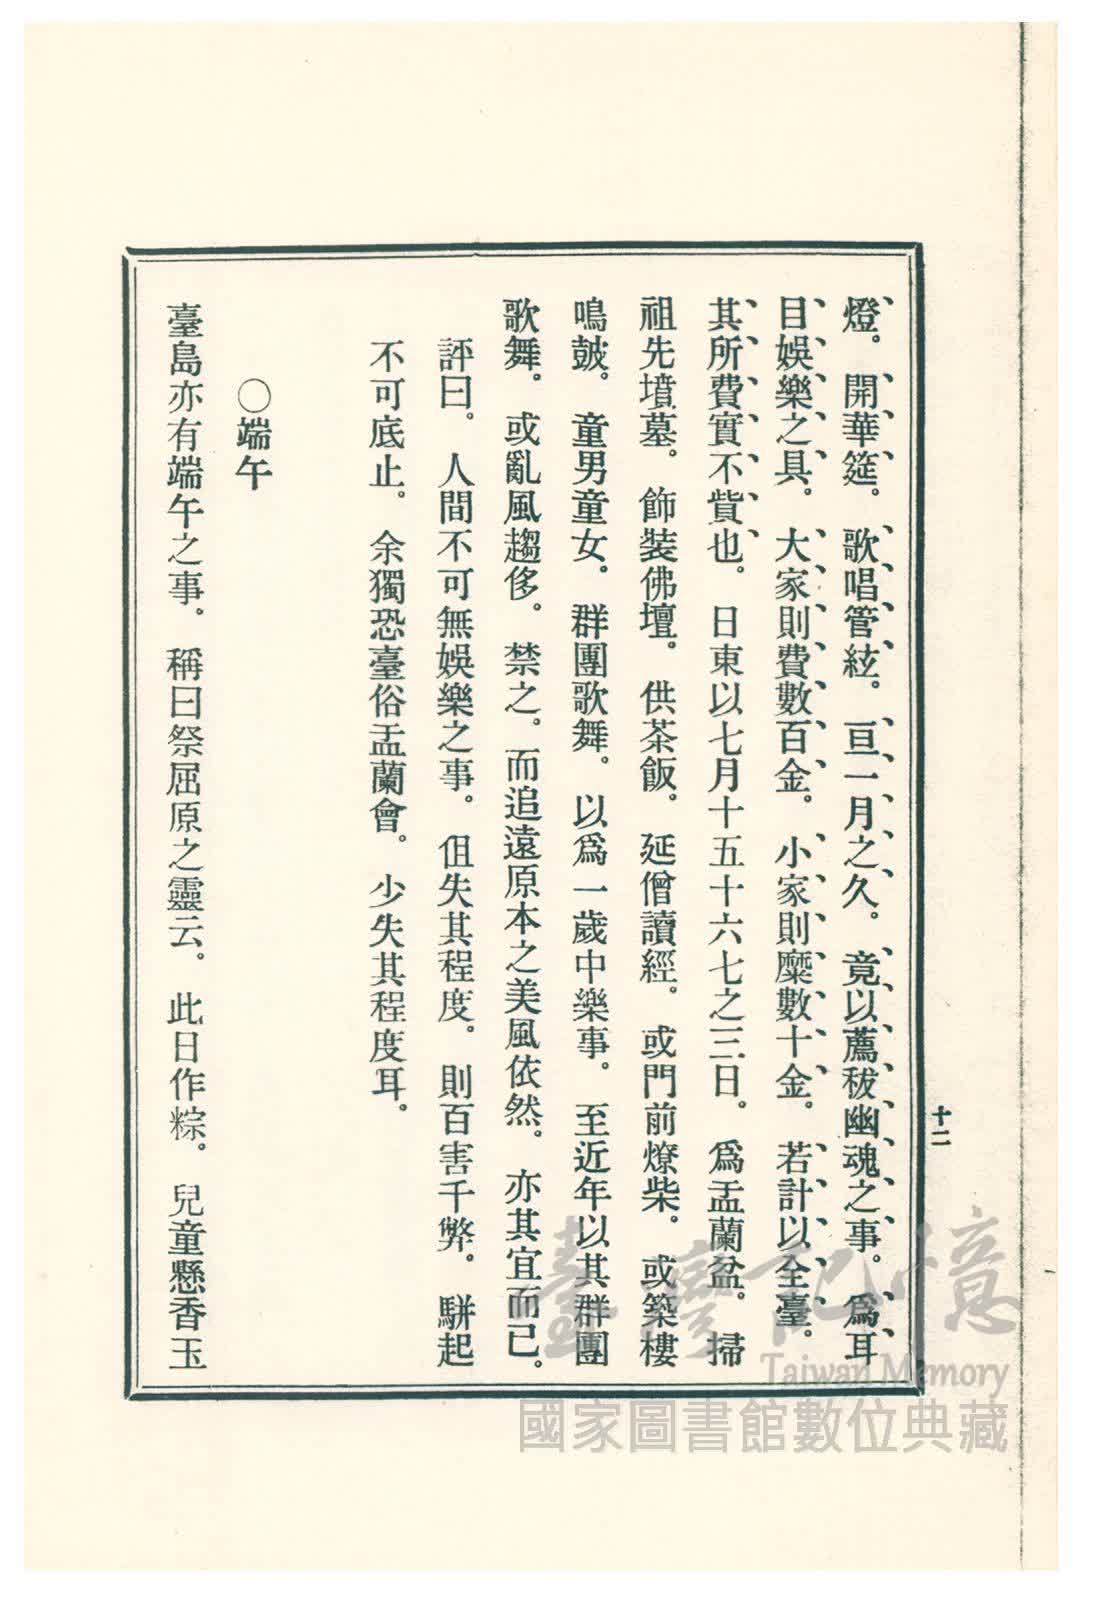 燈。開華筵。歌唱管絃。亘一月之久。竟以薦秡幽魂之事。爲耳
目娛樂之具。大家則費數百金。小家則糜數十金。若計以全臺。
其所費實不貲也。日東以七月十五十六七之三日。爲盂蘭盆。掃
祖先墳墓。飾裝佛壇。供茶飯。延僧讀經。或門前燎柴。或築樓
鳴皷。童男童女。群團歌舞。以爲一歲中樂事。至近年以其群團
歌舞。或亂風趨侈。禁之。而追遠原本之美風依然。亦其宜而已。
評曰。人間不可無娛樂之事。但失其程度。則百害千弊。駢起
不可底止。余獨恐臺俗盂蘭會。少失其程度耳。
〇端午
臺島亦有端午之事。稱曰祭屈原之靈云。此日作粽。兒童懸香玉
十二
臺灣記憶
Taiwan Memory
國家圖書館數位典藏